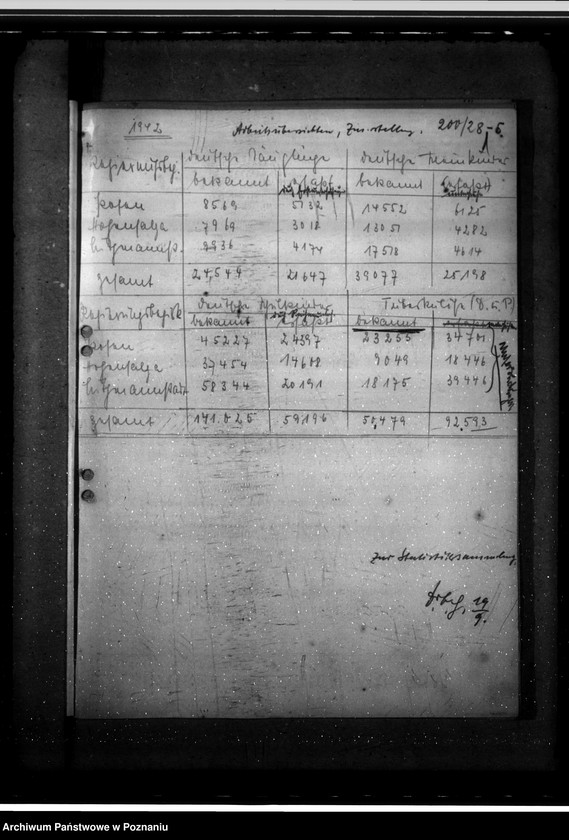 1942
Arbeitsübersichten, Zus.stellung. 200/28-6.
deutsche Säuglinge deutsche Kleinkinder
bekannt erfaßt bekannt erfaßt
Posen 8569 5132 14552 6125
Hohensalza 7969 3018 13051 4282
Litzmannst. 9936 4174 17518 4614
gesamt 24,544 21647 39077 25198
Regierungsbezirk deutsche Tuberkulöse (D.u.P)
bekannt erfaßt bekannt
Posen 45227 24397 23255 34701
Hohensalza 37454 14608 9049 18446
Litzmannstadt 58344 20191 18175 39446
gesamt 141.025 59196 50,479 92.593
Zur Statistiksammlung.
19/9.
Archiwum Państwowe w Poznaniu